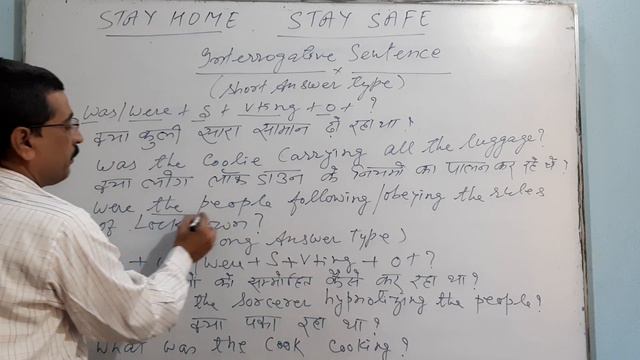 STAY HOME STAY SAFE
Interrogative Sentence
(Short Answer Type)
Was/Were + S + V+ing + O + ?
क्या कुली सारा सामान ढो रहा था?
Was the Coolie Carrying all the luggage?
क्या लोग लॉक डाउन के नियमों का पालन कर रहे थे?
Were the people following/obeying the rules
of Lock
ong Answer Type)
+ /Were + S + V+ing + O + ?
को सम्मोहित कैसे कर रहा था?
the sorcerer hypnotizing the people?
क्या पका रहा था?
What was the Cook Cooking?